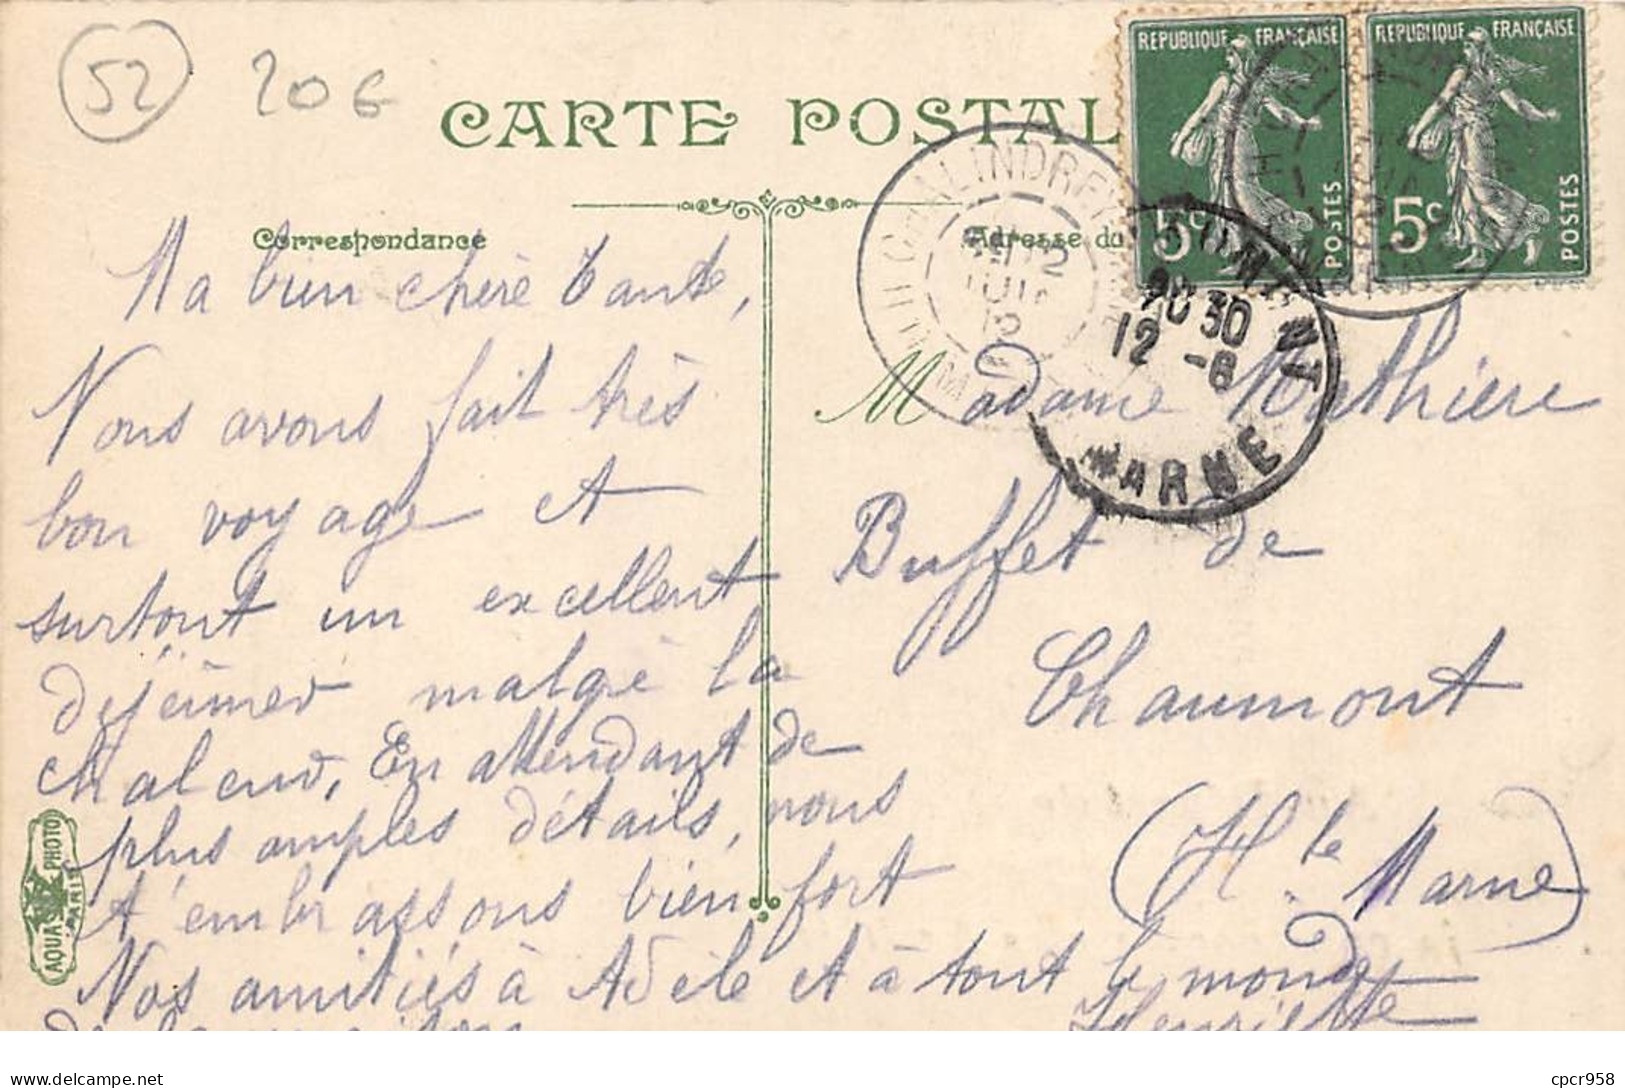 52 206
CARTE POSTAL
REPUBLIQUE FRANÇAISE
5c POSTES
REPUBLIQUE FRANÇAISE
5c POSTES
CHALINDREY
12
20 30
12 -6
MARNE
Correspondance
Adresse du
Ma bien chère tante,
Nous avons fait très
bon voyage et
surtout un excellent
déjeuner malgré la
chaleur, En attendant de
plus amples détails, nous
t'embrassons bien fort
Nos amitiés à Adèle et à tout le monde
de la maison
Henriette
Madame Mathiere
Buffet de
Chaumont
(Hte Marne)
AQUA PHOTO
PARIS
delcampe.net
cpcr958